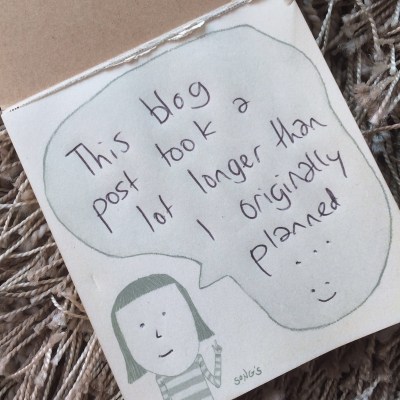 This blog
post took a
lot longer than
I originally
planned
... :)